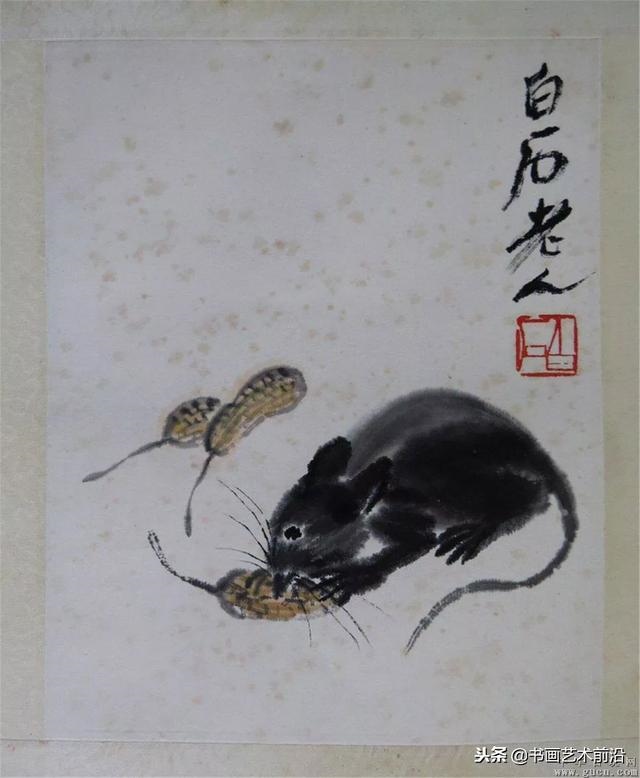 白石老人
白石
头条 @书画艺术前沿
www.gucn.com